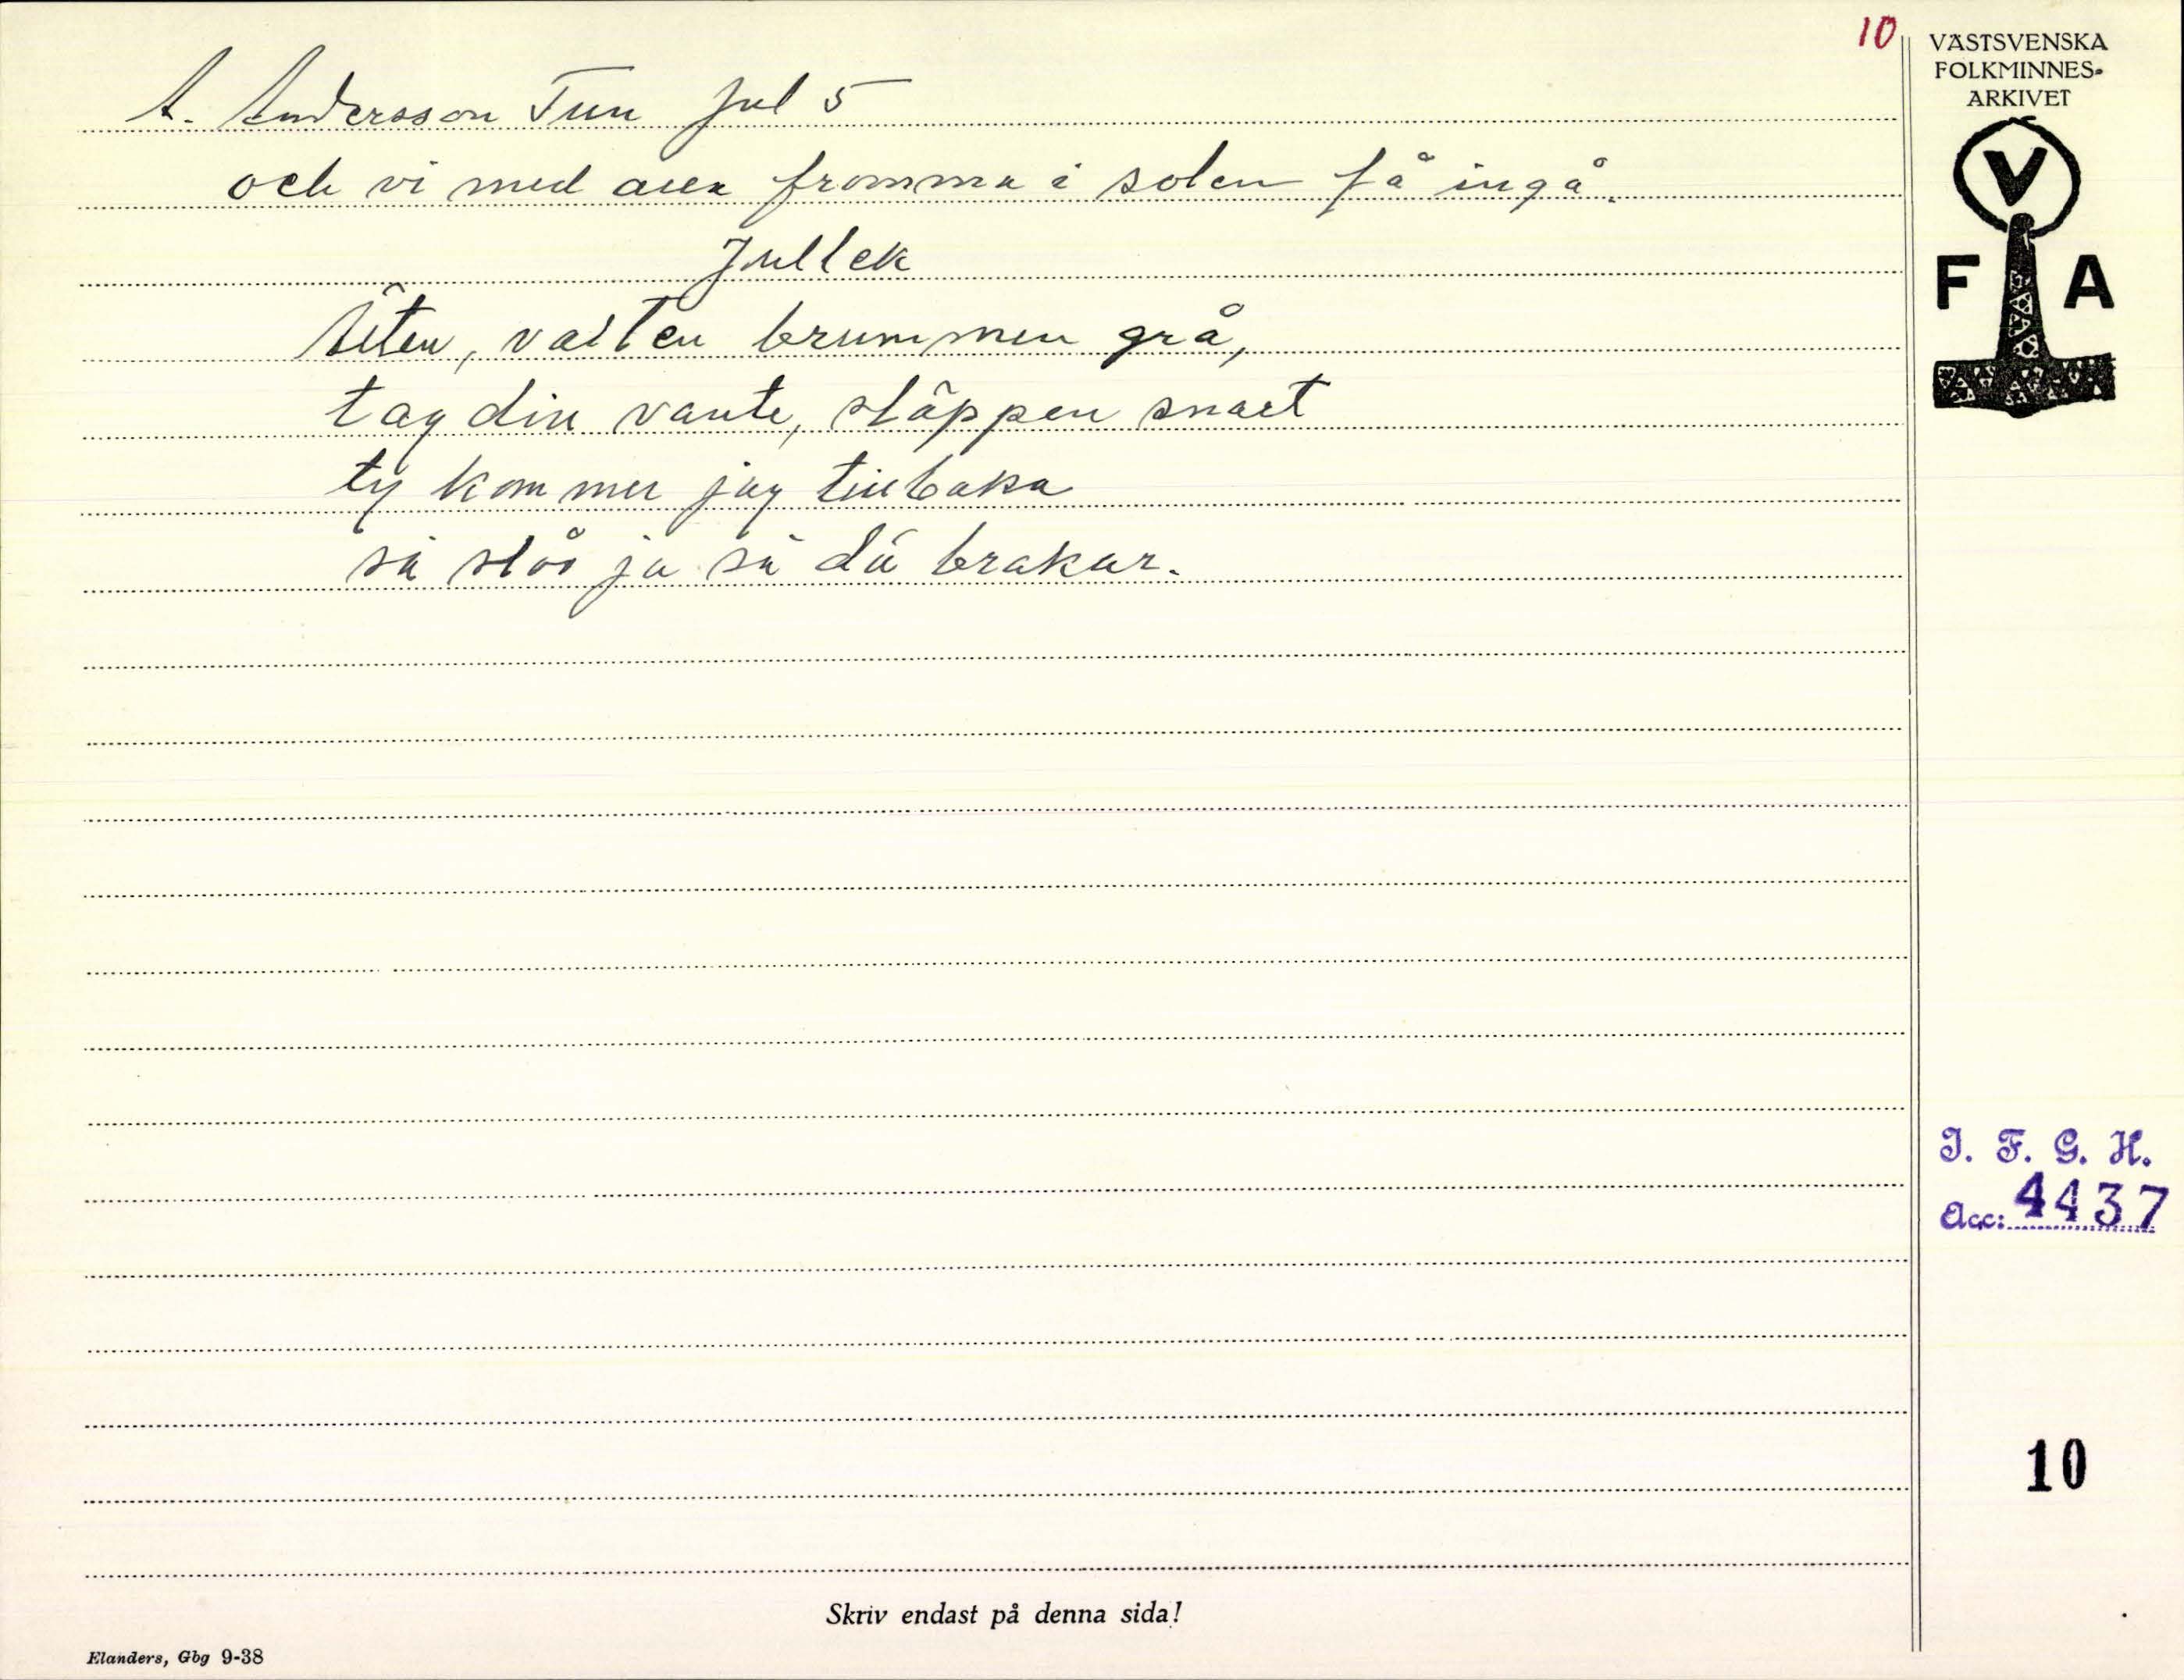 10
VÄSTSVENSKA
FOLKMINNES-
ARKIVET
V
F A
A. Andersson Tun Jul 5
och vi med alla fromma i solen få ingå.
Jullek
vallen brummen grå,
tag din vante, släppen snart
ty kommer jag tillbaka
så slår ja så dä brakar.
I. F. G. H.
Acc: 4437
10
Skriv endast på denna sida!
Elanders, Gbg 9-38